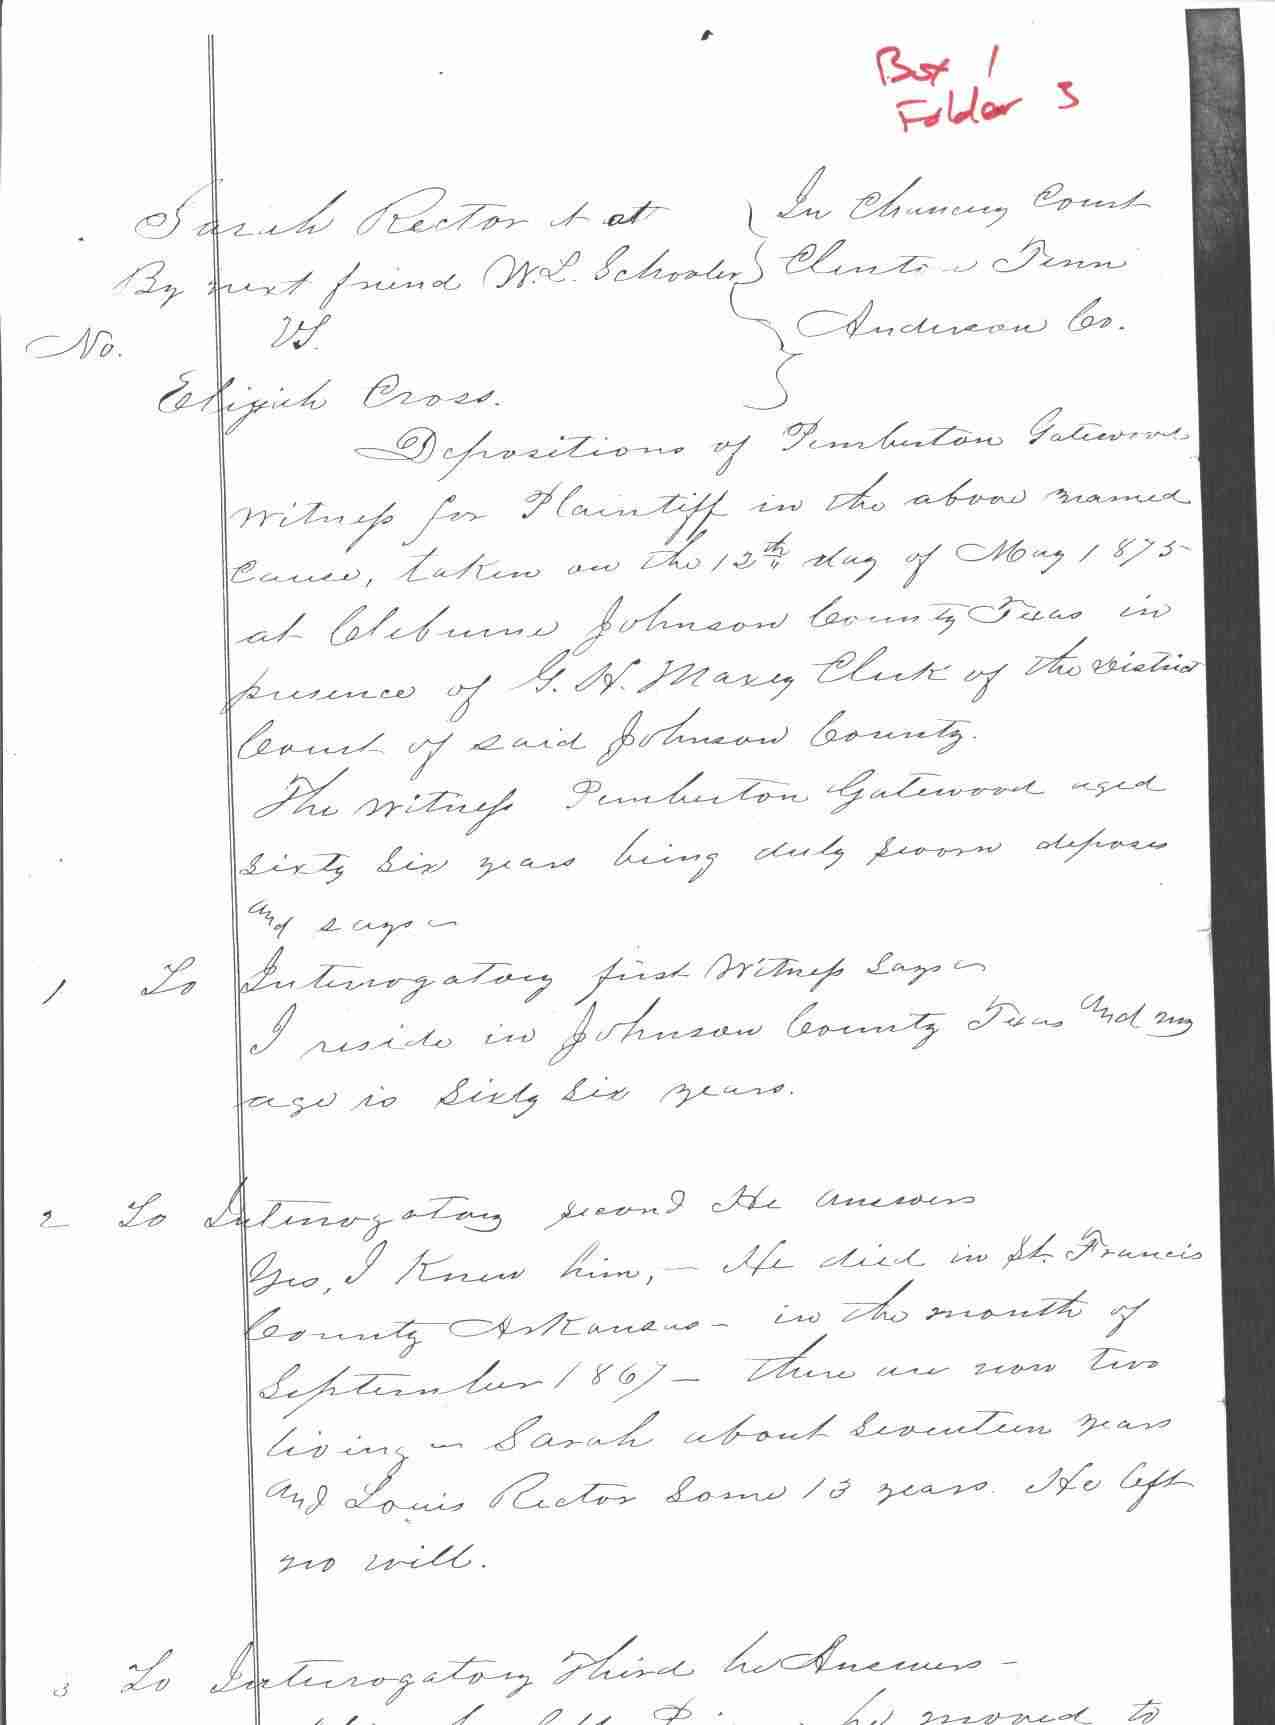 Box 1
Folder 3
Sarah Rector & at
In Chancery Court
By next friend W.L. Schooler
Clinton Tenn
No. VS.
Anderson Co.
Elijah Cross.
Depositions of Pemberton Gatewood
Witness for Plaintiff in the above named
Cause, taken on the 12th day of May 1875
at Cleburne Johnson County Texas in
presence of G. H. Maxey Clerk of the District
Court of said Johnson County.
The Witness Pemberton Gatewood aged
sixty six years being duly sworn deposes
and says
1 To Interrogatory first Witness says
I reside in Johnson County Texas and my
age is sixty six years.
2 To Interrogatory second He answers
Yes, I Knew him, – He died in St. Francis
County Arkansas – in the month of
September 1867 – there are now two
living – Sarah about seventeen years
and Louis Rector some 13 years. He left
no will.
3 To Interrogatory Third he Answers –
he moved to